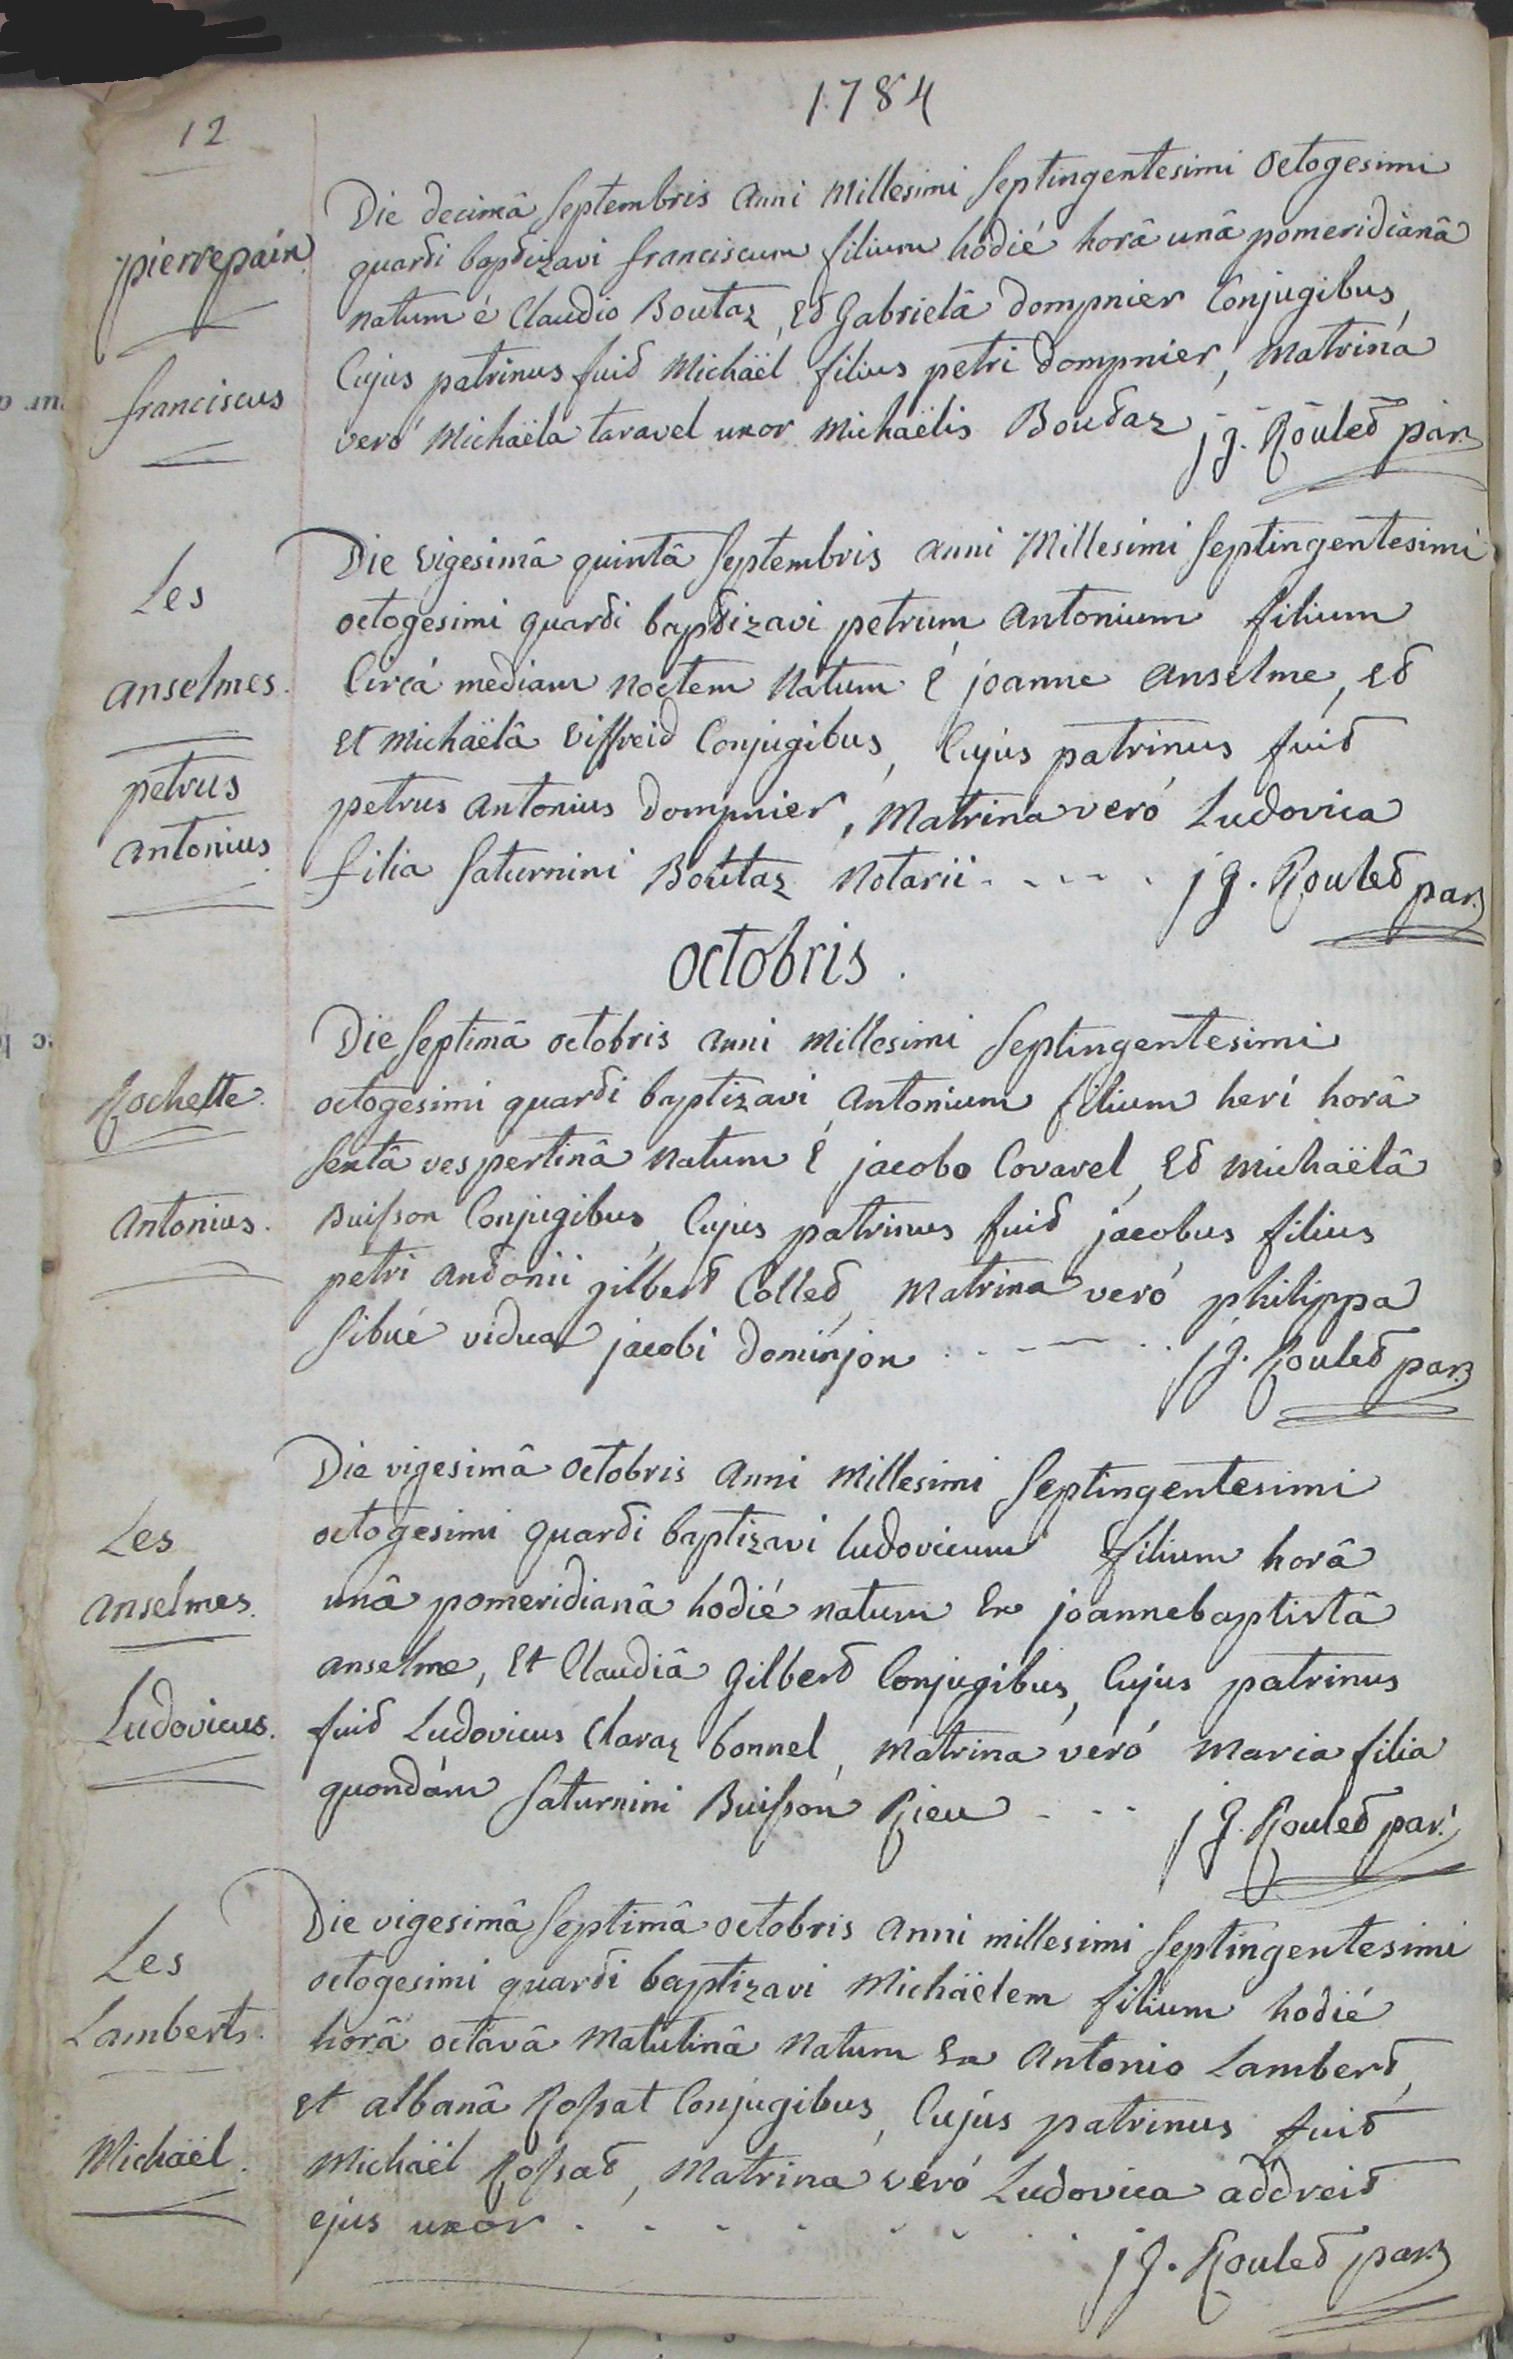 1784
12
pierrepain
franciscus
Die decimâ Septembris anni Millesimi Septingentesimi octogesimi
quarti baptizavi franciscum filium hodié horâ unâ pomeridianâ
natum é Claudio Boutaz, et Gabrielâ dompnier Conjugibus,
Cujus patrinus fuit Michaël filius petri dompnier, Matrina
veró Michaëla taravel uxor Michaëlis Boutaz j g. Roulet par.
Les
anselmes.
petrus
antonius
Die vigesimâ quintâ Septembris anni Millesimi Septingentesimi
octogesimi quarti baptizavi petrum antonium filium
Circá mediam noctem natum é joanne anselme, et
et Michaëlâ viffreid Conjugibus, Cujus patrinus fuit
petrus antonius dompnier, Matrina veró Ludovica
filia Saturnini Boutaz Notarii . . . . . j g. Roulet par.
octobris.
Rochette.
antonius.
Die Septimâ octobris anni Millesimi Septingentesimi
octogesimi quarti baptizavi antonium filium heri horâ
Sextâ vespertinâ natum é jacobo Covarel, et Michaëlâ
Buisson Conjugibus, Cujus patrinus fuit jacobus filius
petri antonii gilbert Collet, Matrina veró philippa
Sibué vidua jacobi dominjon . . . . . j g. Roulet par.
Les
anselmes.
Ludovicus.
Die vigesimâ octobris anni Millesimi Septingentesimi
octogesimi quarti baptizavi ludovicum filium horâ
unâ pomeridianâ hodié natum ex joannebaptistâ
anselme, et Claudiâ Gilbert Conjugibus, Cujus patrinus
fuit Ludovicus Claraz bonnel, Matrina veró Maria filia
quondám Saturnini Buisson Rieu . . . j g. Roulet par.
Les
Lamberts.
Michaël.
Die vigesimâ Septimâ octobris anni millesimi Septingentesimi
octogesimi quarti baptizavi Michaëlem filium hodié
horâ octavâ Matutinâ natum ex antonio Lambert,
et albanâ Rossat Conjugibus, Cujus patrinus fuit
Michaël Rossat, Matrina veró Ludovica addreit
ejus uxor . . . . . . . .
j g. Roulet par.